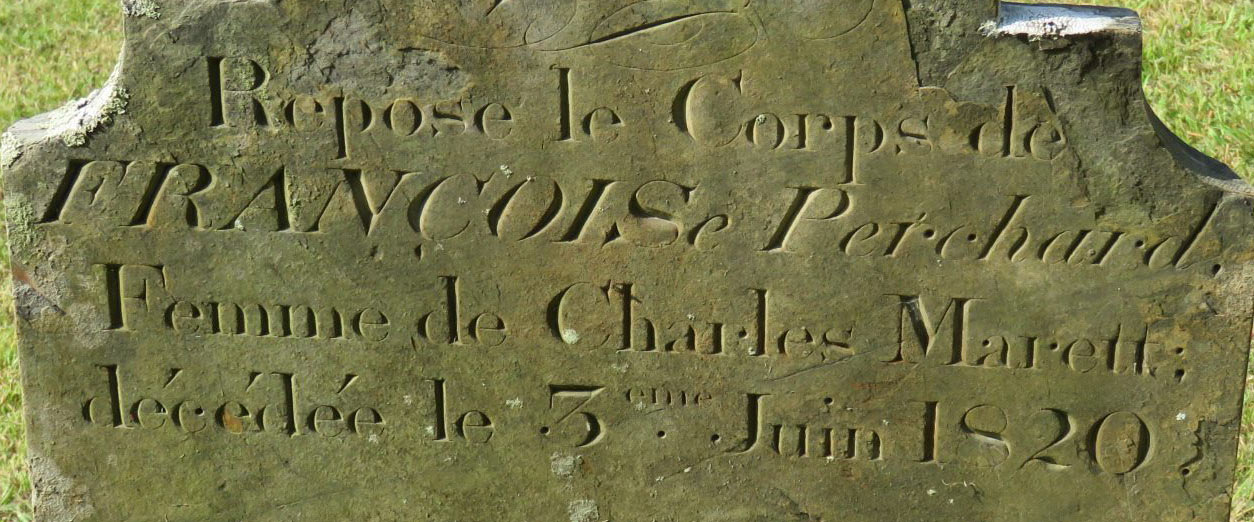 Repose le Corps de
FRANÇOISe Perchard,
Femme de Charles Marett;
décédée le 3eme Juin 1820;